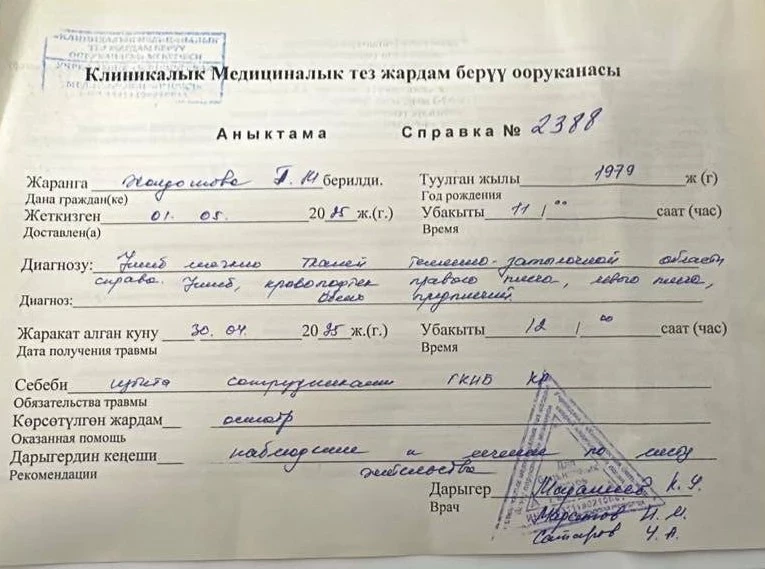 Клиникалык Медициналык тез жардам берүү ооруканасы
Аныктама Справка № 2388
Жаранга Жолдошова Г. М берилди. Туулган жылы 1979 ж (г)
Дана граждан(ке) Год рождения
Жеткизген 01. 05. 2025 ж.(г.) Убакыты 11 / 00 саат (час)
Доставлен(а) Время
Диагнозу: Ушиб мягких тканей теменно-затылочной области
справа. Ушиб, кровоподтек правого плеча, левого плеча,
Диагноз: обеих предплечий.
Жаракат алган куну 30. 04. 2025 ж.(г.) Убакыты 12 / 00 саат (час)
Дата получения травмы Время
Себеби избита сотрудниками ГКНБ КР
Обязательства травмы
Көрсөтүлгөн жардам осмотр
Оказанная помощь
Дарыгердин кеңеши наблюдение и лечение по месту
Рекомендации жительства
Дарыгер К. Ч.
Врач
Марсатов И. И.
Сатаров Ч. А.